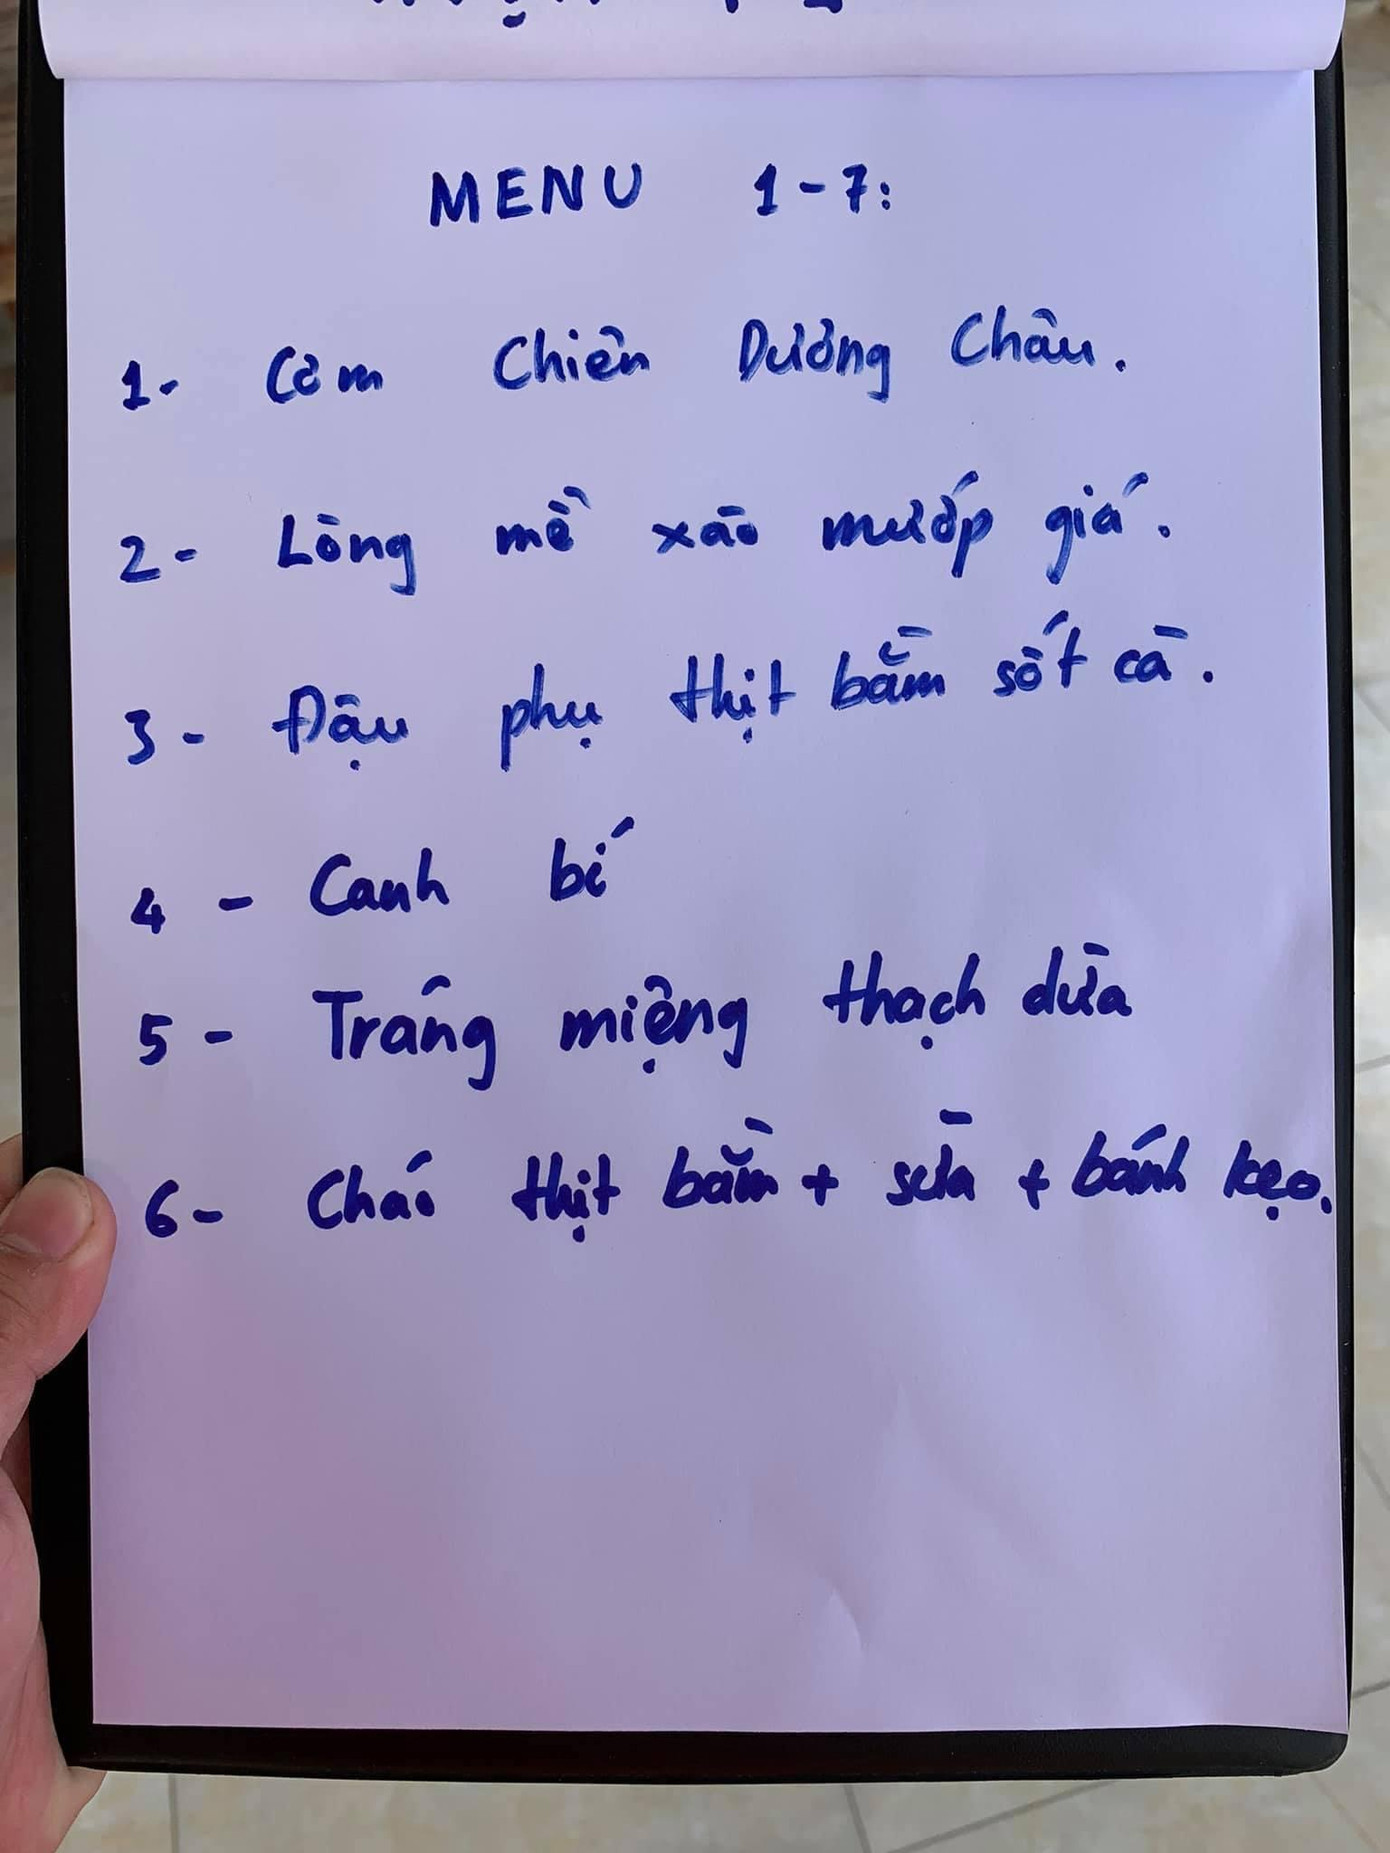 MENU 1-7:
1- Cơm Chiên Dương Châu.
2- Lòng mề xào mướp giá.
3- Đậu phụ thịt bằm sốt cà.
4 - Canh bí
5 - Tráng miệng thạch dừa
6- Cháo thịt bằm + sữa + bánh kẹo.